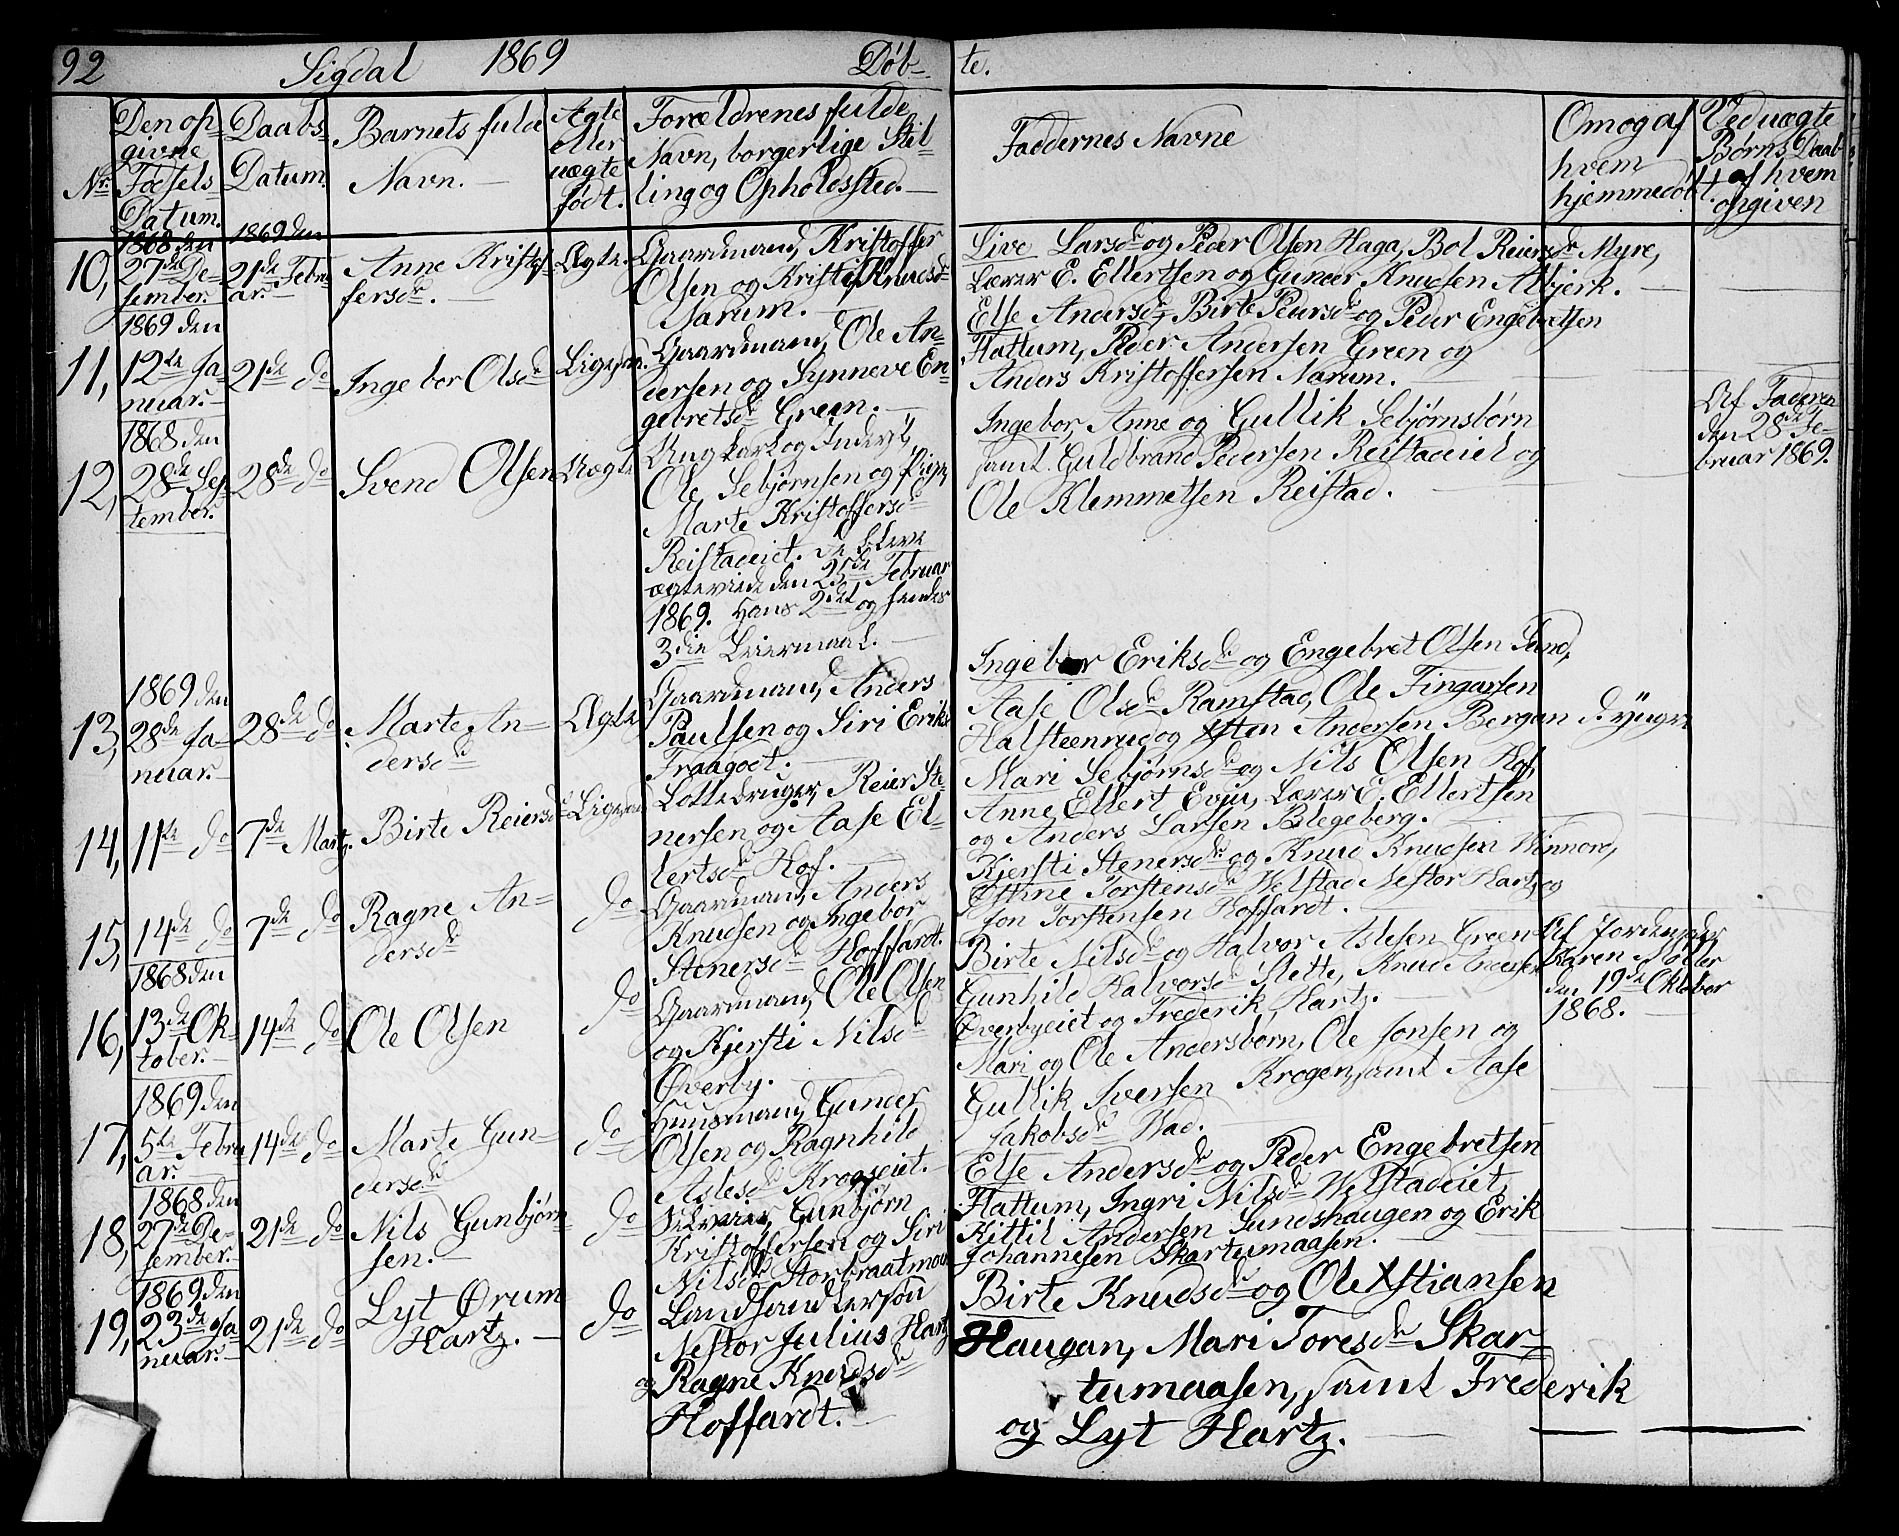 92 Sigdal 1869 Døb- te.
Nr.
Den op-
givne
Fødsels
Datum.
Daabs-
Datum.
Barnets fulde
Navn.
Ægte
eller
uægte
født.
Forældrenes fulde
Navn, borgerlige Stil-
ling og Opholdssted.
Faddernes Navne
Om og af
hvem
hjemmedøbt.
Ved uægte
Børns Daab
af hvem
opgiven
10,
1868 den
27de De-
sember.
1869 den
21de Febru-
ar.
Anne Kristof-
fersdr.
Ægte.
Gaardmand Kristoffer
Olsen og Kristi Knudsdr
Narum.
Live Larsdr og Peder Olsen Haga, Bol Reiersdr Myre,
Lærer E. Ellertsen og Gunder Knudsen Abjerk.
11,
1869 den
12te Ja-
nuar.
21de do
Ingebor Olsdr
Ligesm.
Gaardmand Ole An-
dersen og Synneve En-
gebretsdr Green.
Else Andersdr, Birte Pedersdr og Peder Engebretsen
Flattum, Peder Andersen Green og
Anders Kristoffersen Narum.
12,
1868 den
28de Sep-
tember.
28de do
Svend Olsen
Uægte
Ungkarl og Inders,
Ole Sebjørnsen og Pige,
Marte Kristoffersdr
Reistadeiet. de bleve
ægteviede den 25de Februar
1869. Hans 2det og hendes
3die Leiermaal.
Ingebor, Anne og Gullik Sebjørnsbørn
samt Guldbrand Pedersen Reistadeiet og
Ole Klemmetsen Reistad.
Af Faderen
den 28de Fe-
bruar 1869.
13,
1869 den
28de Ja-
nuar.
28de do
Marte An-
dersdr
Ægte
Gaardmand Anders
Paulsen og Siri Eriksdr
Fraagot.
Ingebor Eriksdr og Engebret Olsen Lund,
Aase Olsdr Ramstad, Ole Fingarsen
Halsteenrud og Xsten Andersen Bergan d. yngre
14,
11te do
7de Martz.
Birte Reiersdr
Ligesaa
Lottebruger, Reier Ste-
nersen og Aase El-
lertsdr Hof.
Mari Sebjørnsdr og Nils Olsen Hof,
Anne Ellert Evju, Lærer E. Ellertsen
og Anders Larsen Blegeberg.
15,
14de do
7de do
Ragne An-
dersdr
do
Gaardmand, Anders
Knudsen og Ingebor
Stenersdr Hoffardt.
Kjersti Stenersdr og Knud Knudsen Winnord,
Othine Torstensdr Welstad Nestor Hartz og
Jon Torstensen Hoffardt.
16,
1868 den
13de Ok-
tober.
14de do
Ole Olsen
do
Gaardmand Ole Olsen
og Kjersti Nilsdr
Øverby.
Birte Nilsdr og Halvor Aslesen Green
Gunhild Halvorsdr Slette, Knud Andersen
Øverbyeiet og Frederik Hartz.
Af Jordemoder
Karen Møller
den 19de Oktober
1868.
17,
1869 den
5te Febru-
ar.
14de do
Marte Gun-
dersdr
do
Huusmand Gunder
Olsen og Ragnhild
Aslesdr Krogseiet.
Mari og Ole Andersbørn, Ole Jonsen og
Gullik Iversen Krogen, samt Aase
Jakobsdr Wad.
18,
1868 den
27de De-
sember.
21de do
Nils Gunbjørn-
sen.
do
Selveier, Gunbjørn
Kristoffersen og Siri
Nilsdr Storbraatmoen
Else Andersdr og Peder Engebretsen
Flattum, Ingri Nilsdr Welstadeiet,
Kittil Andersen Sundshaugen og Erik
Johannesen Skartumaasen.
19,
1869 den
23de Ja-
nuar.
21de do
Lyt Ørum
Hartz.
do
Landhandlersøn
Nestor Julius Hartz
og Ragne Knudsdr
Hoffardt.
Birte Knudsdr og Ole Xstiansen
Haugan, Mari Toresdr Skar-
tumaasen, samt Frederik
og Lyt Hartz.